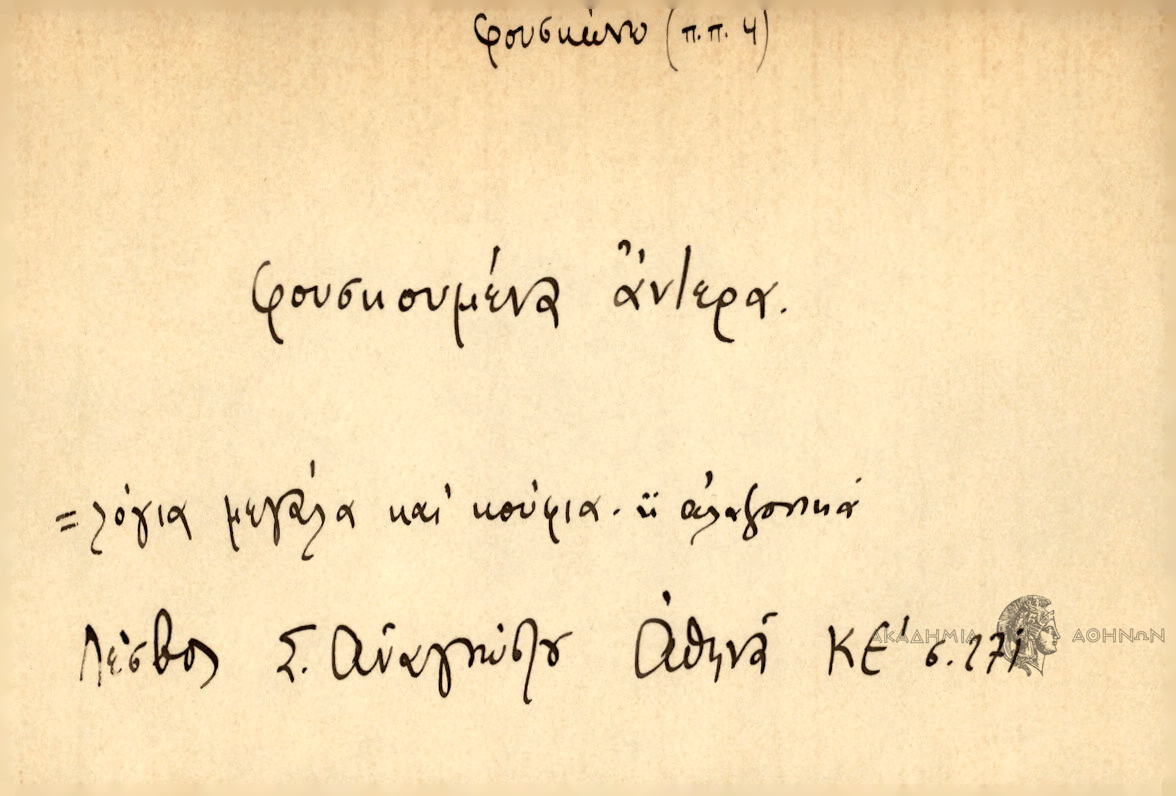 φουσκώνω (π.π. 4)
φουσκουμένα ἄντερα.
= λόγια μεγάλα καὶ κούφια. ἢ ἀλαζονικά
Λέσβος Σ. Ἀναγνώστου Ἀθηνᾶ ΚΕ' σ. 271
ΑΚΑΔΗΜΙΑ ΑΘΗΝΩΝ